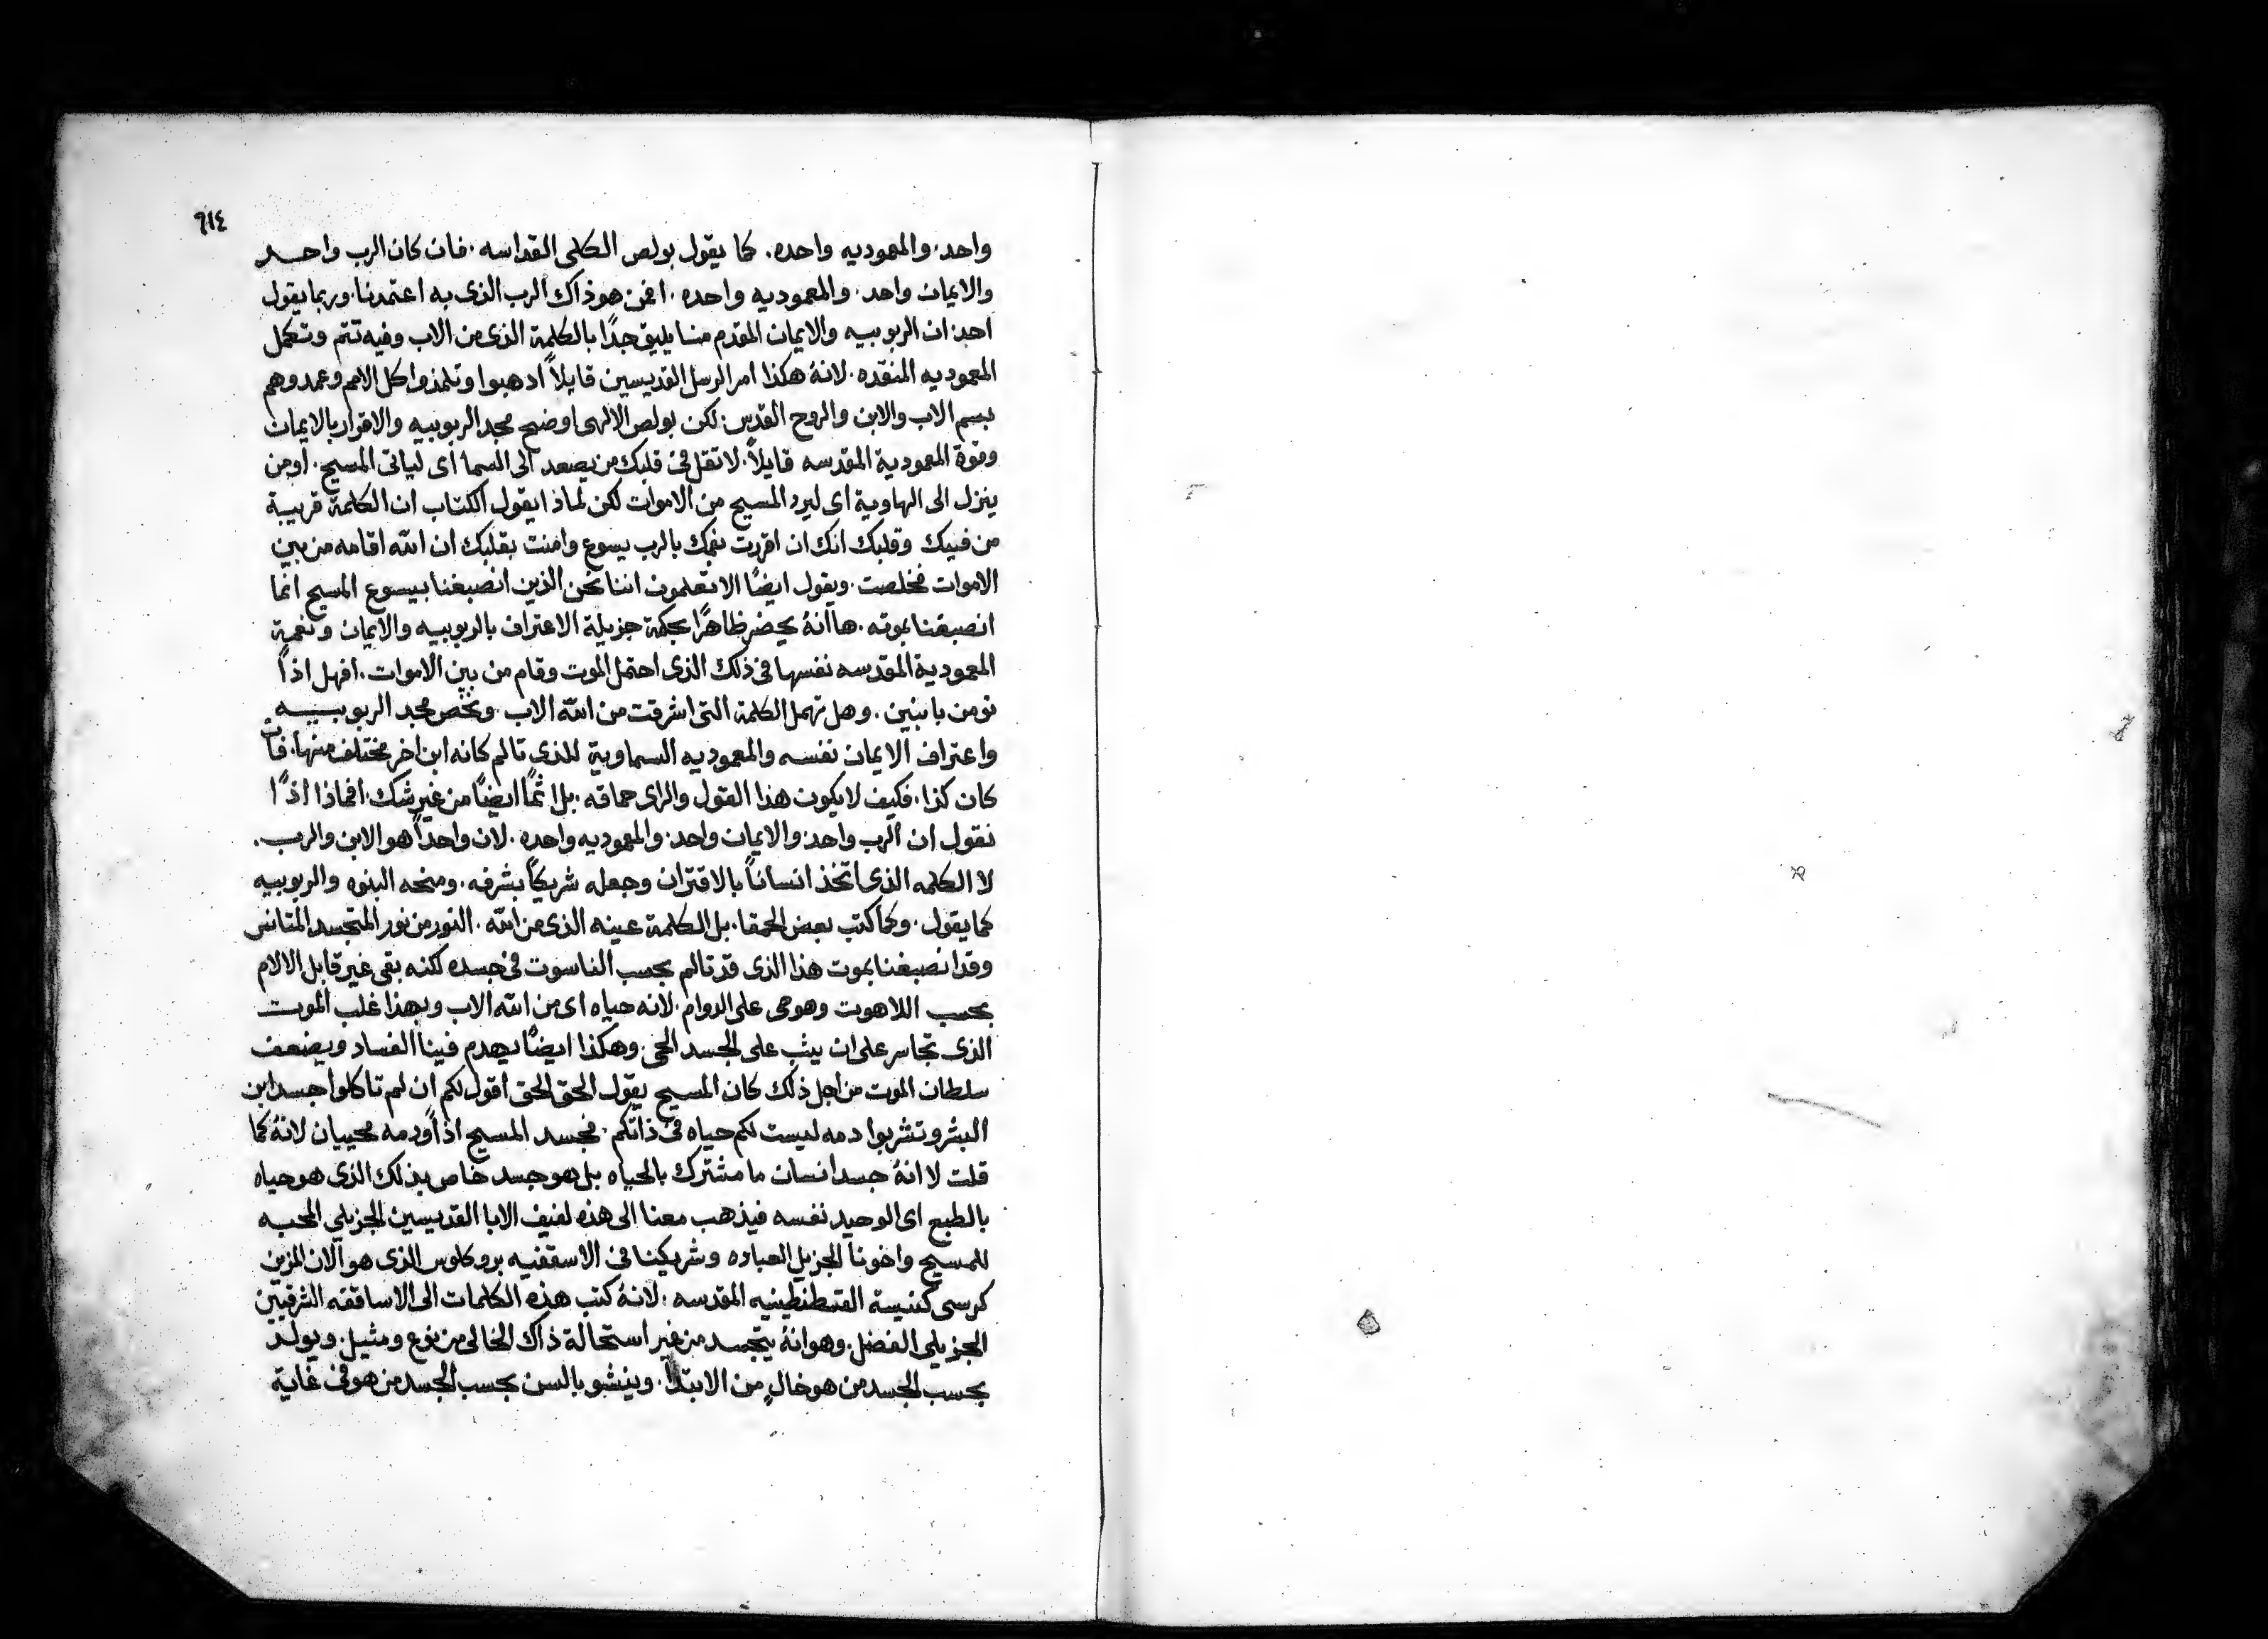 ٩١٤
واحد. والمعموديه واحده. كما يقول بولص الكلى القداسه. فان كان الرب واحد
والايمان واحد. والمعموديه واحده. افمن هو ذاك الرب الذى به اعتمدنا. وربما يقول
احد: ان الربوبيه والايمان المقدم منا يليق جدًا بالكلمة الذى من الاب وفيه تتم وتكمل
المعموديه المنقده. لانهُ هكذا امر الرسل القديسين قايلاً ادهبوا وتلمذوا كل الامم وعمدوهم
بسم الاب والابن والروح القدس: لكن بولص الالهى اوضح مجد الربوبيه والاقرار بالايمان
وقوة المعمودية المقدسه قايلاً. لا تقل فى قلبك من يصعد الى السما اى لياتى المسيح. او من
ينزل الى الهاوية اى ليرد المسيح من الاموات لكن لماذا يقول الكتاب ان الكلمة قريبة
من فيك وقلبك انك ان اقررت بفمك بالرب يسوع وامنت بقلبك ان الله اقامه من بين
الاموات فخلصت. ويقول ايضًا الا تعلمون اننا نحن الذين انصبغنا بيسوع المسيح انما
انصبغنا بموته. ها انهُ يحضر ظاهرًا بحكمة جزيلة الاعتراف بالربوبيه والايمان ونعمة
المعمودية المقدسه نفسها فى ذلك الذى احتمل الموت وقام من بين الاموات. افهل اذًا
نومن بابنين. وهل نهمل الكلمة التى اشرقت من الله الاب. ونخص مجد الربوبيه
واعتراف الايمان نفسه والمعموديه السماوية للذى تالم كانه ابن اخر مختلف منها. فان
كان كذا. فكيف لا يكون هذا القول والراى حماقه. بل اثمًا ايضًا من غير شك. افماذا اذًا
نقول ان الرب واحد والايمان واحد. والمعموديه واحده. لان واحدًا هو الابن والرب.
لا الكلمه الذى اتخذ انسانًا بالاقتران وجعله شريكًا بشرفه. ومنحه البنوه والربوبيه
كما يقول. وكما كتب بعض الحمقا. بل الكلمة عينه الذى من الله. النور من نور المتجسد المتانس
وقد انصبغنا بموت هذا الذى قد تالم بحسب الناسوت فى جسده لكنه بقى غير قابل الالام
بحسب اللاهوت وهو حى على الدوام. لانه حياه اى من الله الاب وبهذا غلب الموت
الذى تجاسر على ان يثب على الجسد الحى. وهكذا ايضًا يهدم فينا الفساد ويضعف
سلطان الموت من اجل ذلك كان المسيح يقول الحق الحق اقول لكم ان لم تاكلوا جسد ابن
البشر وتشربوا دمه ليست لكم حياه فى ذاتكم. فجسد المسيح اذًا ودمه محييان لانهُ كما
قلت لا انهُ جسد انسان ما مشترك بالحياه بل هو جسد خاص بذلك الذى هو حياه
بالطبع اى الوحيد نفسه فيذهب معنا الى هذه لفيف الابا القديسين الجزيلى المحبه
للمسيح واخونا الجزيل العباده وشريكنا فى الاسقفيه بروكلوس الذى هو الان المزين
كرسى كنيسة القسطنطينيه المقدسه. لانهُ كتب هذه الكلمات الى الاساقفه الشرقيين
الجزيلى الفضل. وهو انهُ يتجسد من غير استحالة ذاك الخالى من نوع ومثيل. ويولد
بحسب الجسد من هو خالٍ من الابتدا. وينشو بالسن بحسب الجسد من هو فى غاية